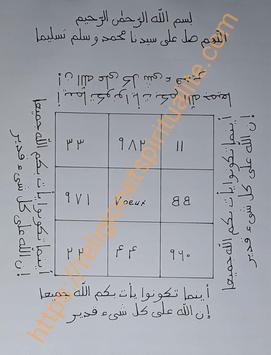 بسم الله الرحمن الرحيم
اللهم صل على سيدنا محمد وسلم تسليما
أينما تكونوا يأت بكم الله جميعا
إن الله على كل شىء قدير
أينما تكونوا يأت بكم الله جميعا
إن الله على كل شىء قدير
١١ ٩٨٢ ٣٣
٥٥ Voeux ٩٧١
٩٦٠ ٤٤ ٢٢
أينما تكونوا يأت بكم الله جميعا
إن الله على كل شىء قدير
أينما تكونوا يأت بكم الله جميعا
إن الله على كل شىء قدير
https://religionetspiritualite.com